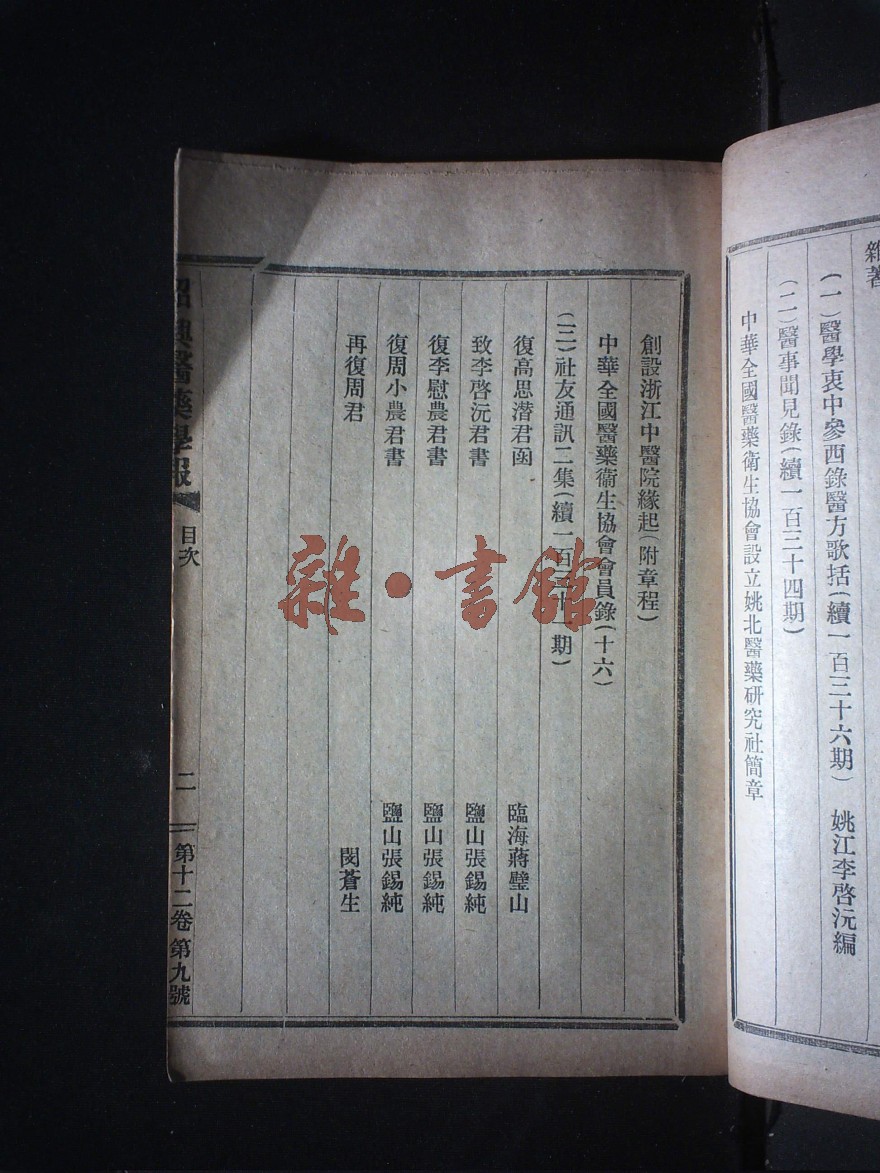 雜著
(一)醫學衷中參西錄醫方歌括(續一百三十六期) 姚江李啓沅編
(二)醫事聞見錄(續一百三十四期)
中華全國醫藥衛生協會設立姚北醫藥研究社簡章
創設浙江中醫院緣起(附章程)
中華全國醫藥衞生協會會員錄(十六)
(三)社友通訊二集(續一百三十一期)
復高思潛君函 臨海蔣璧山
致李啓沅君書 鹽山張錫純
復李慰農君書 鹽山張錫純
復周小農君書 鹽山張錫純
再復周君 閔蒼生
紹興醫藥學報 目次 二 第十二卷第九號
雜·書館